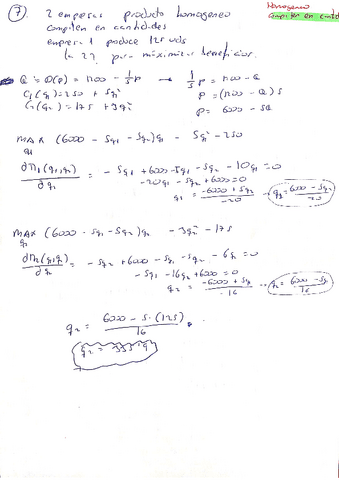 7) 2 empresas producto homogeneo
Homogeneo
compiten en cantidades
compiten en cantid
empresa 1 produce 125 uds
la 2? para maximizar beneficios.
Q = D(P) = 1200 - 1/5 P → 1/5 P = 1200 - Q
C1(q1) = 250 + 5q1² P = (1200 - Q) 5
C2(q2) = 175 + 3q2² P = 6000 - 5Q
MAX (6000 - 5q1 - 5q2) q1 - 5q1² - 250
q1
∂Π1(q1,q2) / ∂q1 = -5q1 + 6000 - 5q1 - 5q2 - 10q1 = 0
-20q1 - 5q2 + 6000 = 0
q1 = -6000 + 5q2 / -20 → q1 = 6000 - 5q2 / 20
MAX (6000 - 5q1 - 5q2) q2 - 3q2² - 175
∂Π2(q1,q2) / ∂q2 = -5q2 + 6000 - 5q1 - 5q2 - 6q2 = 0
-5q1 - 16q2 + 6000 = 0
q2 = -6000 + 5q1 / -16 → q2 = 6000 - 5q1 / 16
q2 = 6000 - 5·(125) / 16
q2 = 335'9